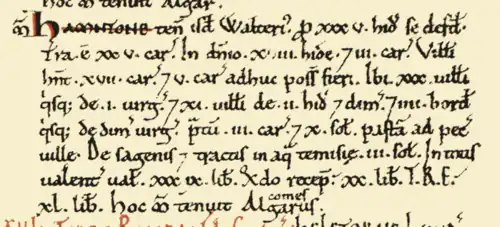 hoc m̄ tenuit Algar.
m̄ HAMNTONE ten̄ isd̄ Walteri'. ꝑ xxxv. hid' se defd'.
Tra. ē xxv. car'. In dm̄io .x.iii. hidę. ⁊ iii. car'. Villi
hn̄t .xvii. car'. ⁊ v. car' adhuc poss' fieri. Ibi .xxx. uilli
qsq; de .i. uirg'. ⁊ xi. uilli de .ii. hid' ⁊ dim'. ⁊ iiii. bord'
qsq; de dim' uirg'. p̄tū .iii. car'. ⁊ x. sol'. pasta ad pec'
uille. De sagenis ⁊ tractis in aq̄ temisię .iii. sol'. In
ualent' ual'. xxxix. lib'. Qdo recep'. xx. lib'. T.R.E.
xl. lib'. Hoc m̄ tenuit Algarus comes.